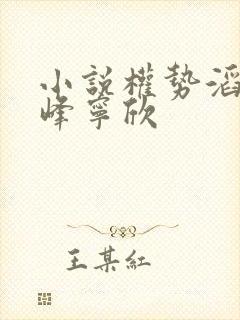 小說權勢滔
峰寧欣
王某紅